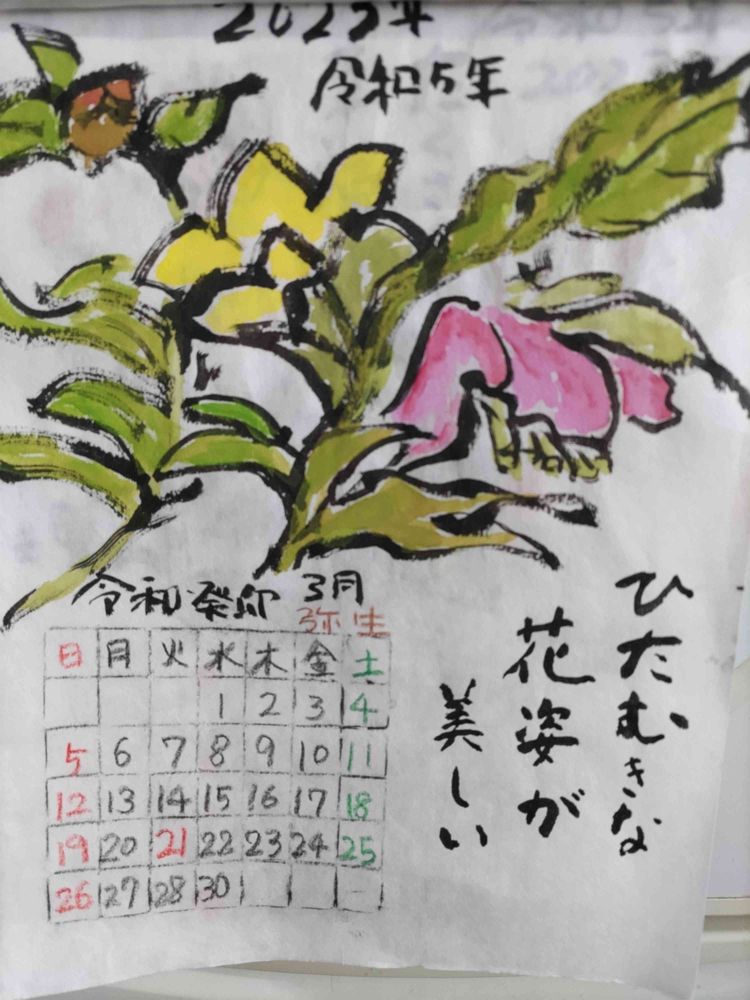 2023年
令和5年
ひたむきな
花姿が
美しい
令和癸卯 3月
弥生
日 月 火 水 木 金 土
1 2 3 4
5 6 7 8 9 10 11
12 13 14 15 16 17 18
19 20 21 22 23 24 25
26 27 28 30